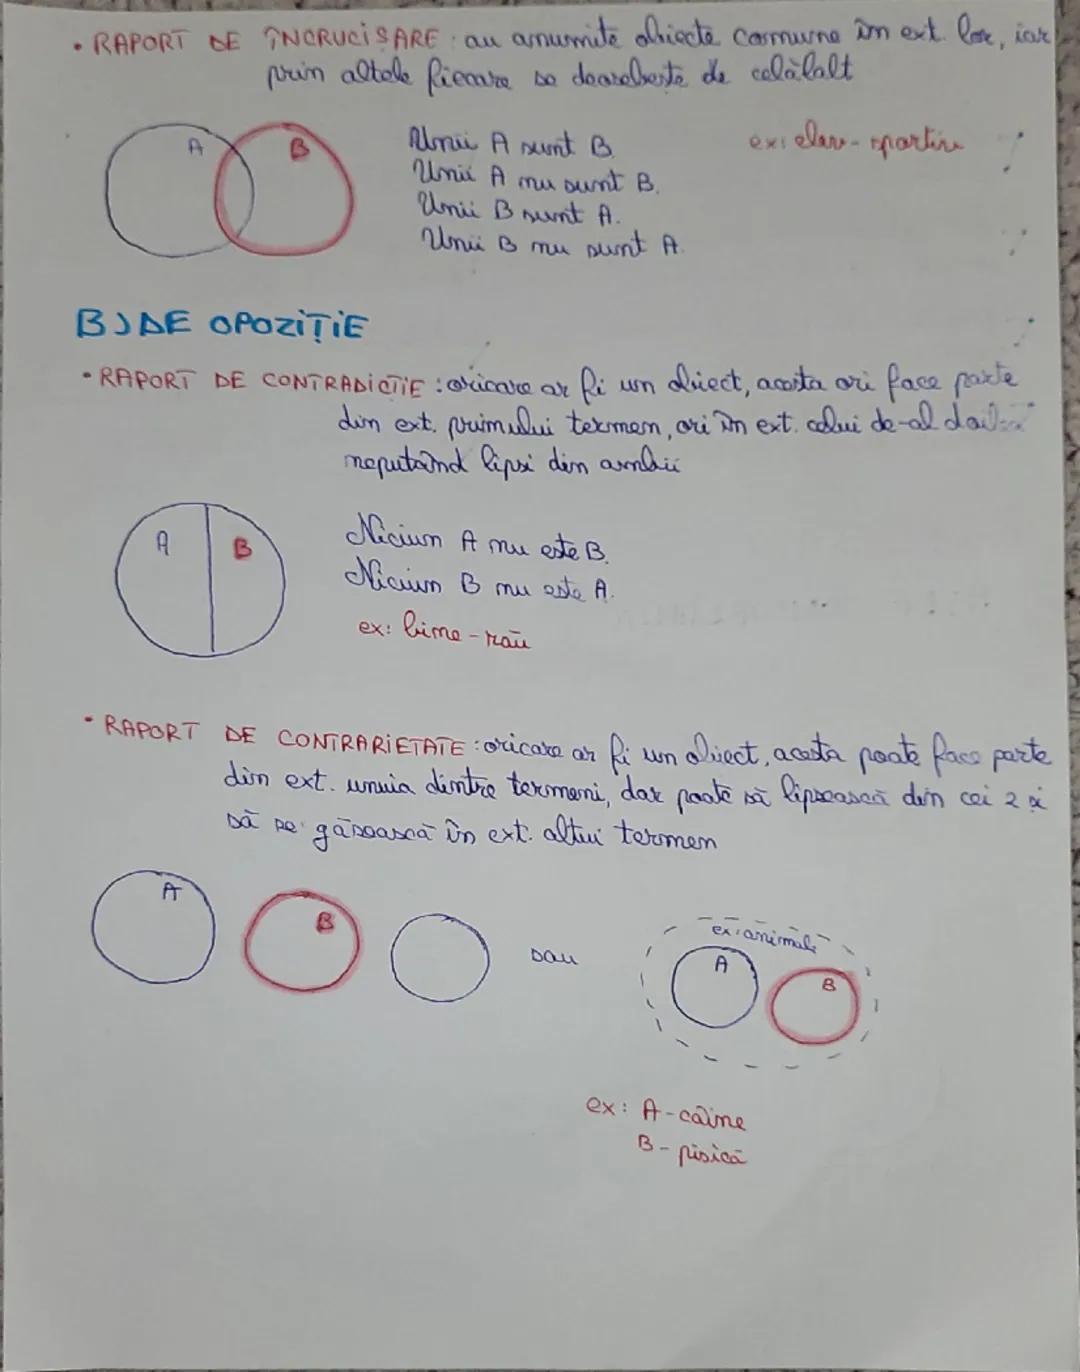 • RAPORT DE ÎNCRUCIȘARE: au anumite obiecte comune în ext. lor, iar
prin altele fiecare se deosebește de celălalt
A B
Unii A sunt B.
Unii A nu sunt B.
Unii B sunt A.
Unii B nu sunt A.
ex: elev - sportiv
B) DE OPOZIȚIE
• RAPORT DE CONTRADICȚIE: oricare ar fi un obiect, acesta ori face parte
din ext. primului termen, ori în ext. celui de-al doilea
neputând lipsi din ambii
A B
Niciun A nu este B.
Niciun B nu este A.
ex: bine - rău
• RAPORT DE CONTRARIETATE: oricare ar fi un obiect, acesta poate face parte
din ext. unuia dintre termeni, dar poate să lipsească din cei 2 și
să se găsească în ext. altui termen
A B sau ex: animale A B
ex: A - câine
B - pisică